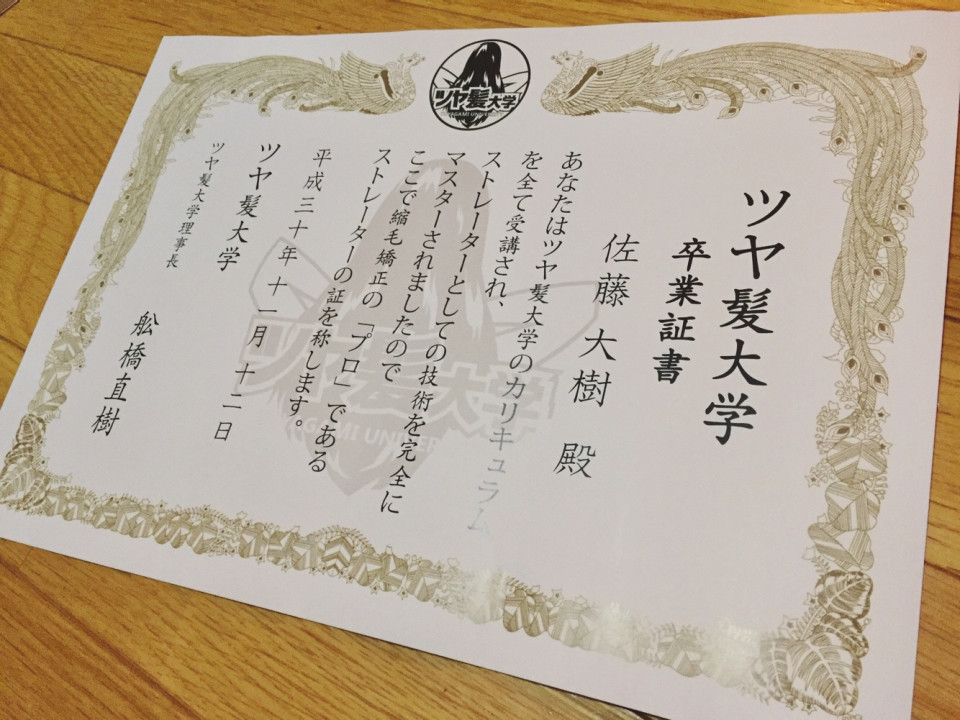 ツヤ髪大学
TSUYAGAMI UNIVERSITY
ツヤ髪大学
卒業証書
佐藤大樹 殿
あなたはツヤ髪大学のカリキュラム
を全て受講され、
ストレーター
マスターとしての技術を完全に
マスターされましたので
ここで縮毛矯正の「プロ」である
ストレーターの証を称します。
平成三十年十一月十二日
ツヤ髪大学
ツヤ髪大学理事長
舩橋直樹